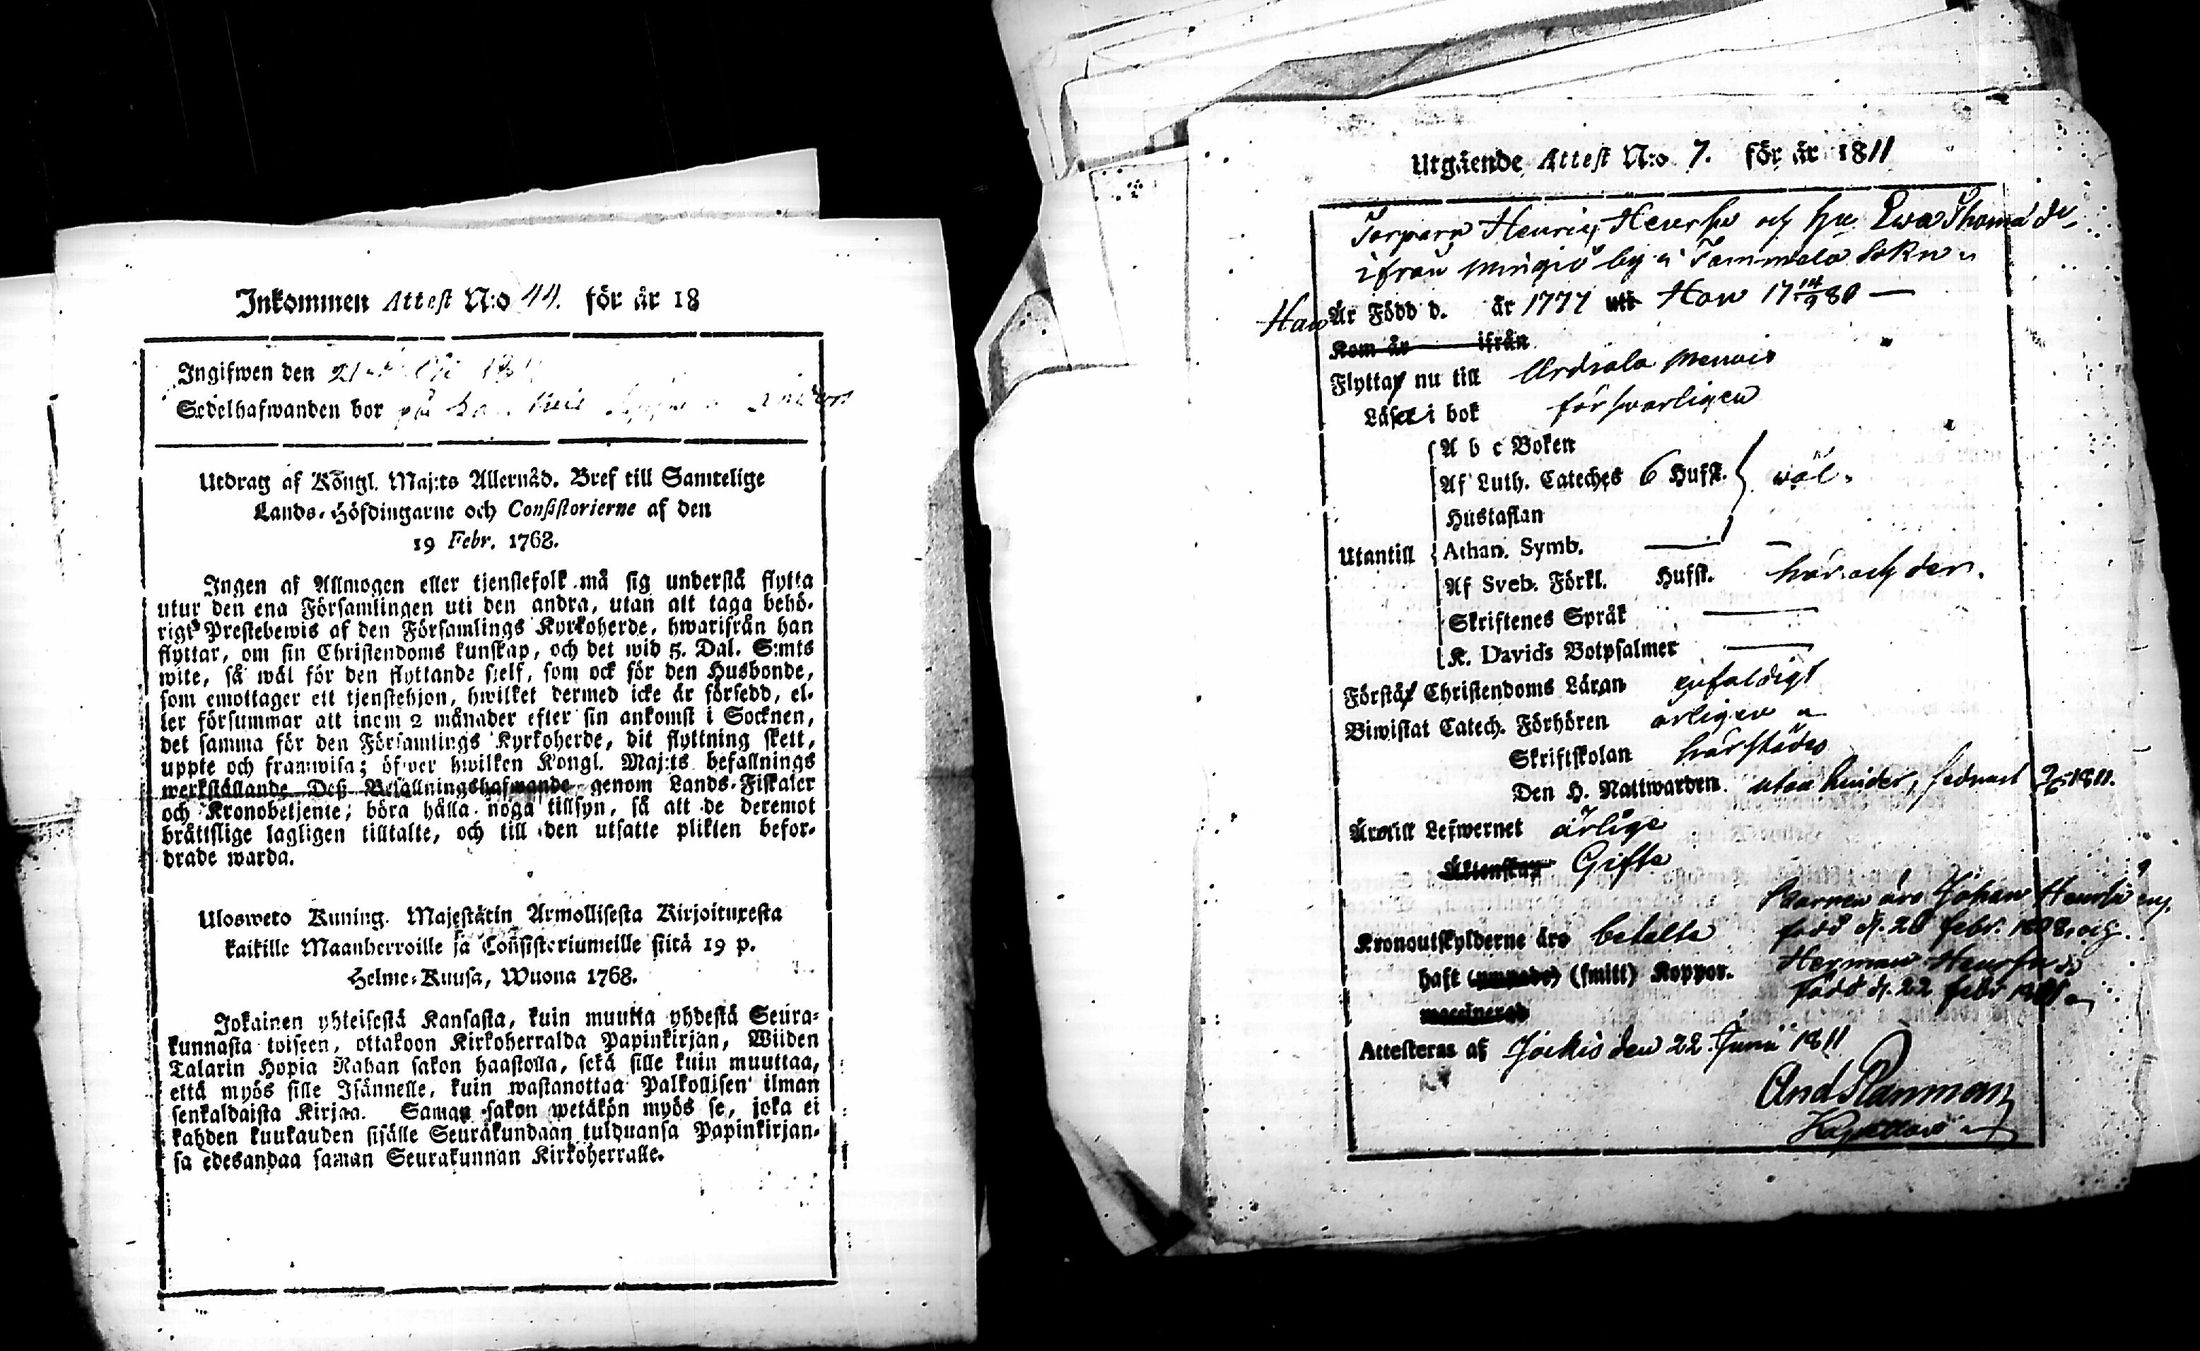 Inkommen Attest N:o 44. för år 18
Ingifwen den 21
Sedelhafwanden bor på
Utdrag af Kongl. Maj:ts Allernåd. Bref till Samtelige
Lands-Höfdingarne och Consistorierne af den
19 Febr. 1768.
Ingen af Allmogen eller tjenstefolk må sig understå flytta
utur den ena Församlingen uti den andra, utan att taga behö-
rigt Prestebewis af den Församlings Kyrkoherde, hwarifrån han
flyttar, om sin Christendoms kunskap, och det wid 5. Dal. S:mts
wite, så wäl för den flyttande sjelf, som ock för den Husbonde,
som emottager ett tjenstehjon, hwilket dermed icke är försedd, el-
ler försummar att inom 2 månader efter sin ankomst i Socknen,
det samma för den Församlings Kyrkoherde, dit flyttning skett,
uppte och framwisa; öfwer hwilken Kongl. Maj:ts befallnings
werkställande Deß Befallningshafwande genom Lands-Fiskaler
och Kronobetjente; böra hålla noga tillsyn, så att de deremot
brättslige lagligen tilltalte, och till den utsatte plikten befor-
drade warda.
Ulosweto Kuning. Majestätin Armollisesta Kirjoituxesta
kaikille Maanherroille ja Consistoriumeille siitä 19 p.
Helme-Kuusa, Wuona 1768.
Jokainen yhteisestä Kansasta, kuin muutta yhdestä Seura-
kunnasta toiseen, ottakoon Kirkoherralda Papinkirjan, Wiiden
Talarin Hopia Rahan sakon haastolla, sekä sille kuin muuttaa,
että myös sille Isännelle, kuin wastanottaa Palkollisen ilman
senkaldaista Kirjaa. Saman sakon wetäkön myös se, joka ei
kahden kuukauden sisälle Seurakundaan tulduansa Papinkirjan-
sa edesandaa saman Seurakunnan Kirkoherralle.
Utgående Attest N:o 7. för år 1811
Torparn Henric Henrsson och Hu Ewa Thomæ dr
ifrån by i Tammela Sokn
Han Är Född d. år 1777 Hon 17 14/9 80
Kom år ifrån
Flytta nu till Urdiala
Läsa i bok försvarligen
A b c Boken
Af Luth. Cateches 6 Hufst. wäl.
Hustaflan
Utantill Athan. Symb.
Af Sveb. Förkl. Hufst. här och der.
Skriftenes Språk
K. Davids Botpsalmer
Förstå Christendoms Läran enfaldigt
Biwistat Catech. Förhören årligen
Skriftskolan härstädes
Den H. Nattwarden utan hinder, sednast 1811.
Äro till Lefwernet ärlige
Äktenskap Gifte
Barnen äro Johan
Kronoutskylderne äro betalte född d. 28 febr. 1808, och
haft (smitt) Koppor. Herman
född d. 22 febr 1811
Attesteras af Jockis den 22 Junii 1811
And Planman
Kapellan